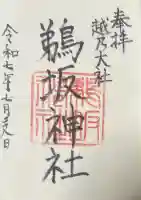 奉拝
越乃大社
鵜坂神社
令和七年七月 日